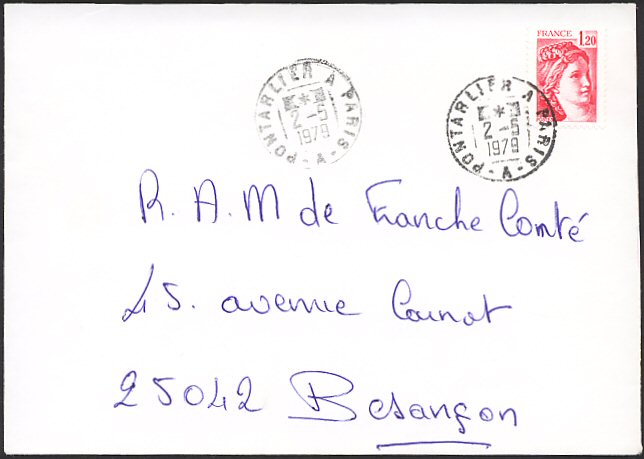 FRANCE
1,20
PONTARLIER A PARIS
2-5
1979
-A-
PONTARLIER A PARIS
2-5
1979
-A-
R. A. M de Franche Comté
45. avenue Carnot
25042 Besançon